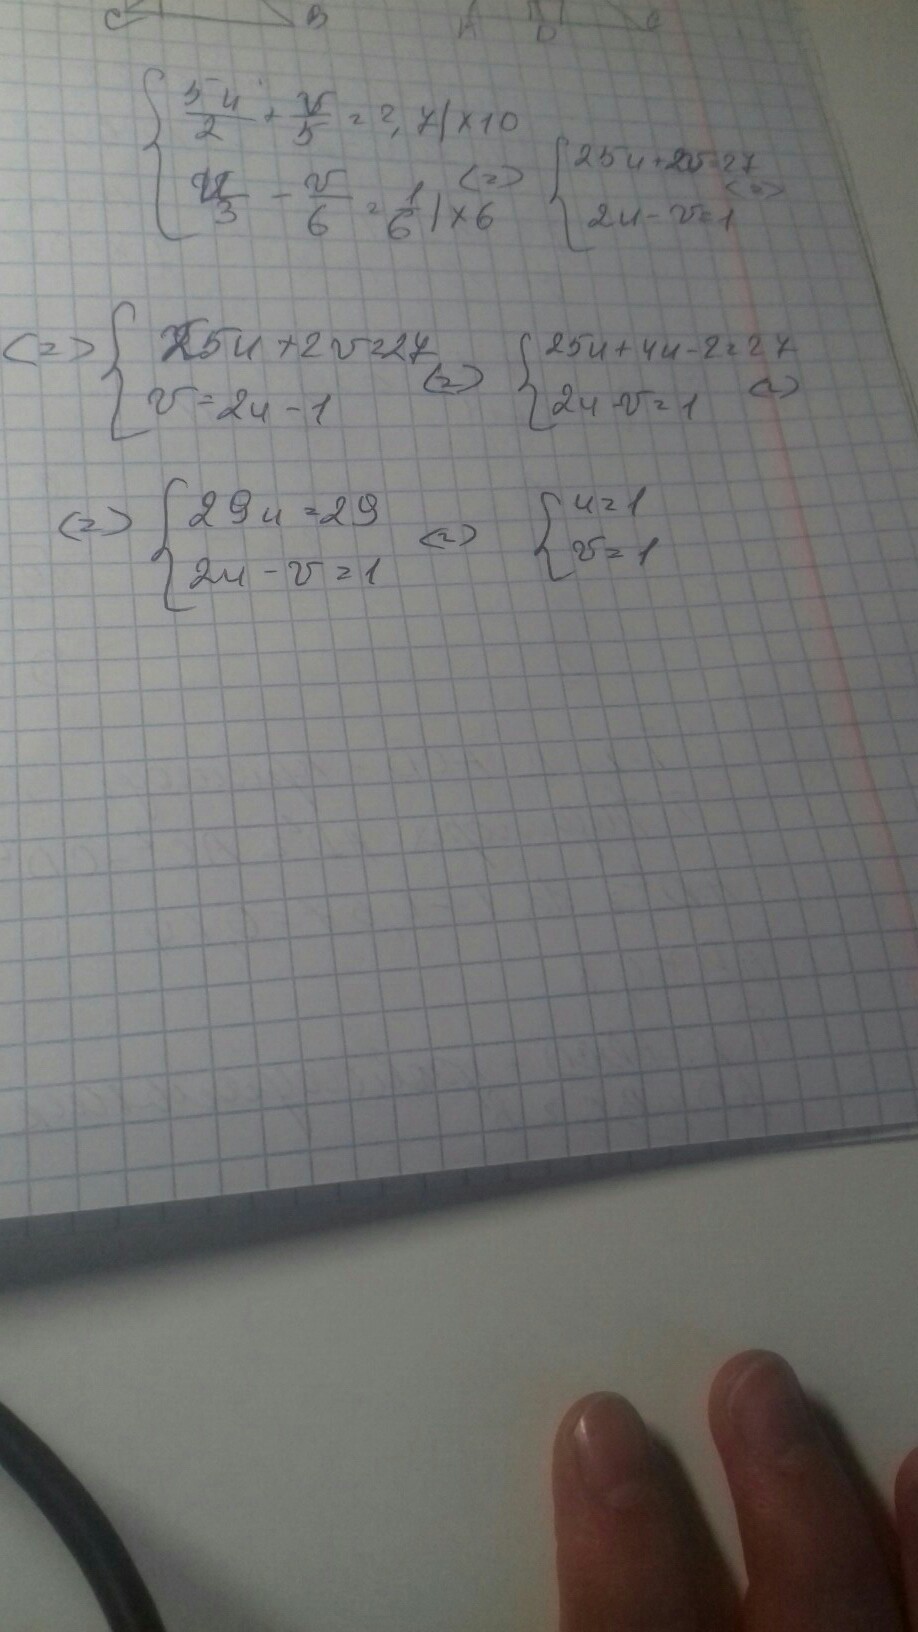 C B A D C
{ 5u/2 + v/5 = 2,7 | ×10
{ u/3 - v/6 = 1/6 | ×6 <=> { 25u+2v=27
{ 2u-v=1 <=>
<=> { 25u+2v=27
{ v=2u-1 <=> { 25u+4u-2=27
{ 2u-v=1 <=>
<=> { 29u=29
{ 2u-v=1 <=> { u=1
{ v=1